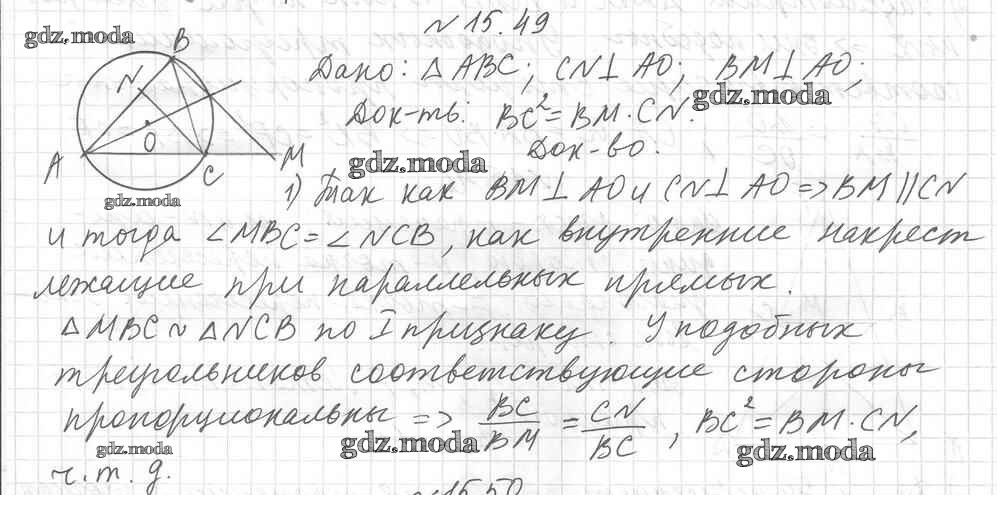 N 15.49
gdz.moda
B
N
O
A
C
M
Дано: △ABC; CN⊥AO; BM⊥AO;
gdz.moda
Док-ть: BC²=BM·CN.
gdz.moda
Док-во:
gdz.moda
1) Так как BM⊥AO и CN⊥AO => BM||CN
и тогда ∠MBC=∠NCB, как внутренние накрест
лежащие при параллельных прямых.
△MBC~△NCB по I признаку. У подобных
треугольников соответствующие стороны
пропорциональны => BC/BM = CN/BC, BC²=BM·CN,
gdz.moda gdz.moda gdz.moda
ч.т.д.
N 15.50